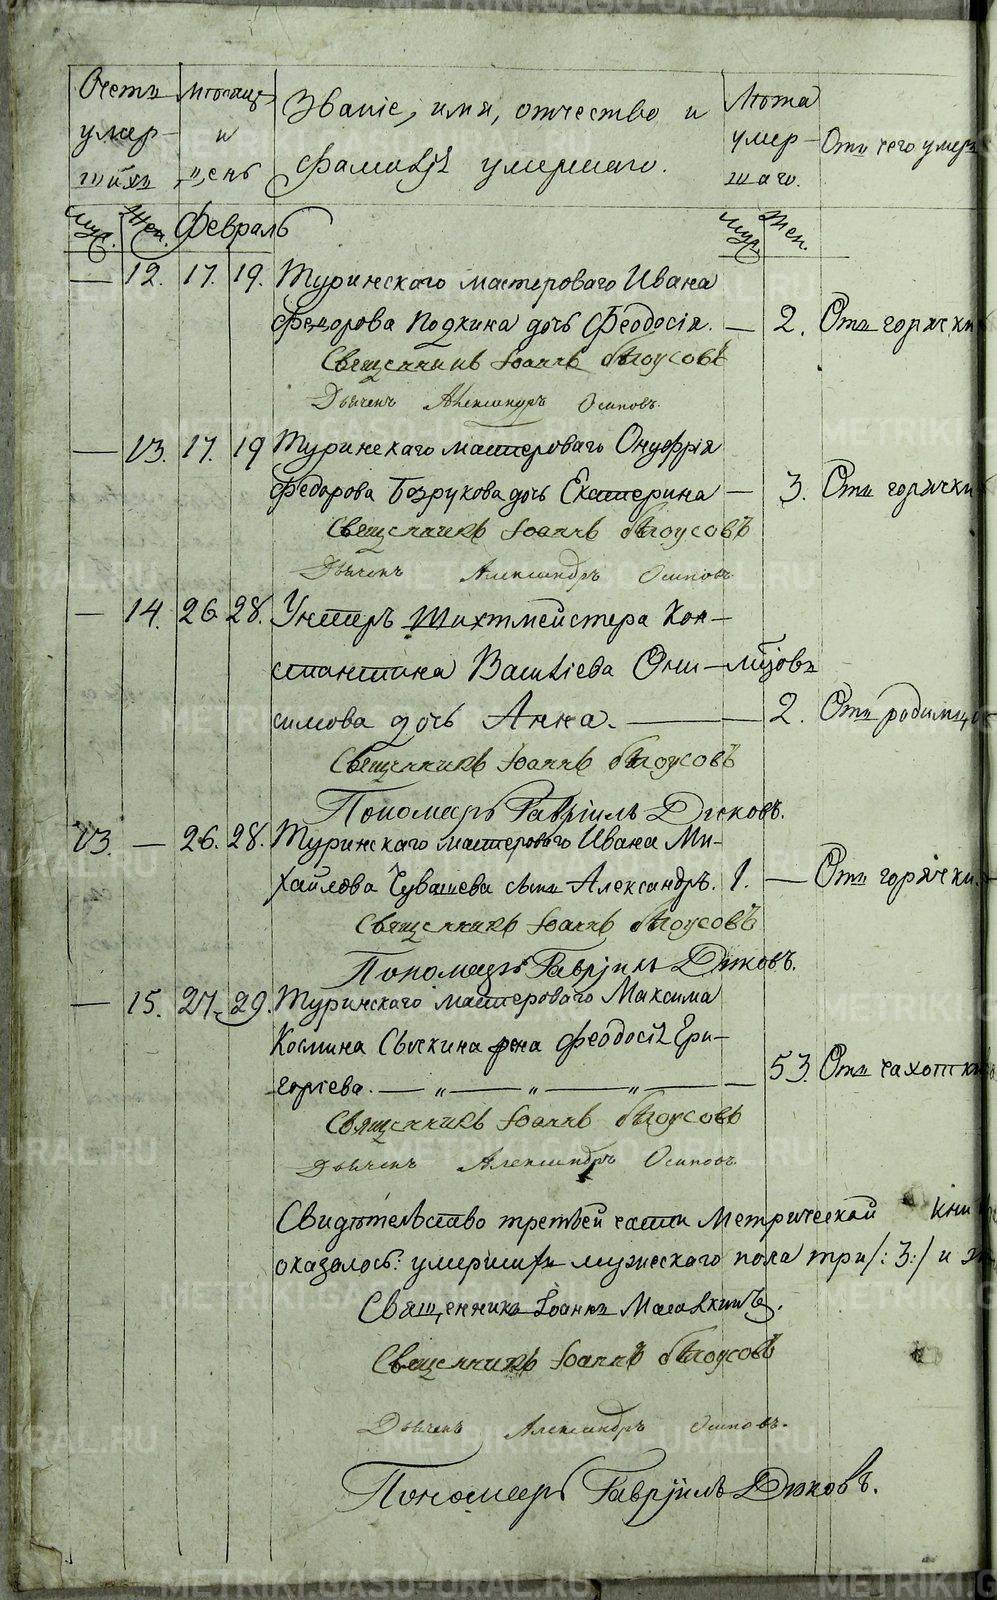 Счетъ умер-шихъ
Мѣсяцъ и день
Званіе, имя, отчество и
фамилія умершаго.
Лѣта умер-шаго.
Отъ чего умеръ
Муж. Жен. Февраль Муж. Жен.
— 12. 17. 19. Туринскаго мастероваго Ивана
Федорова дочь Феодосія. — 2. Отъ горячки
Священникъ Іоаннъ Бѣлоусовъ
Дьяченъ Александръ Осиповъ.
— 13. 17. 19 Туринскаго мастероваго Онуфрія
Федорова Безрукова дочь Екатерина — 3. Отъ горячки
Священникъ Іоаннъ Бѣлоусовъ
Дьяченъ Александръ Осиповъ
— 14. 26 28. Унтеръ Шихтмейстера Кон-
стантина Васильева Они-
симова дочь Анна. — 2. Отъ родимца
Священникъ Іоаннъ Бѣлоусовъ
Пономарь Гавріилъ Дьяковъ.
13. — 26. 28. Туринскаго мастероваго Ивана Ми-
хайлова Чувашева сынъ Александръ. 1. — Отъ горячки.
Священникъ Іоаннъ Бѣлоусовъ
Пономарь Гавріилъ Дьяковъ.
— 15. 27. 29. Туринскаго мастероваго Максима
Космина жена Феодосія Гри-
горьева. — „ — „ — „ — 53. Отъ чахотки
Священникъ Іоаннъ Бѣлоусовъ
Дьяченъ Александръ Осиповъ.
Свидѣтельство третьей части Метрической
оказалось: умершихъ мужескаго пола три /: 3 :/ и
Священникъ Іоаннъ
Священникъ Іоаннъ Бѣлоусовъ
Дьяченъ Александръ Осиповъ.
Пономарь Гавріилъ Дьяковъ.
METRIKI.GASO-URAL.RU